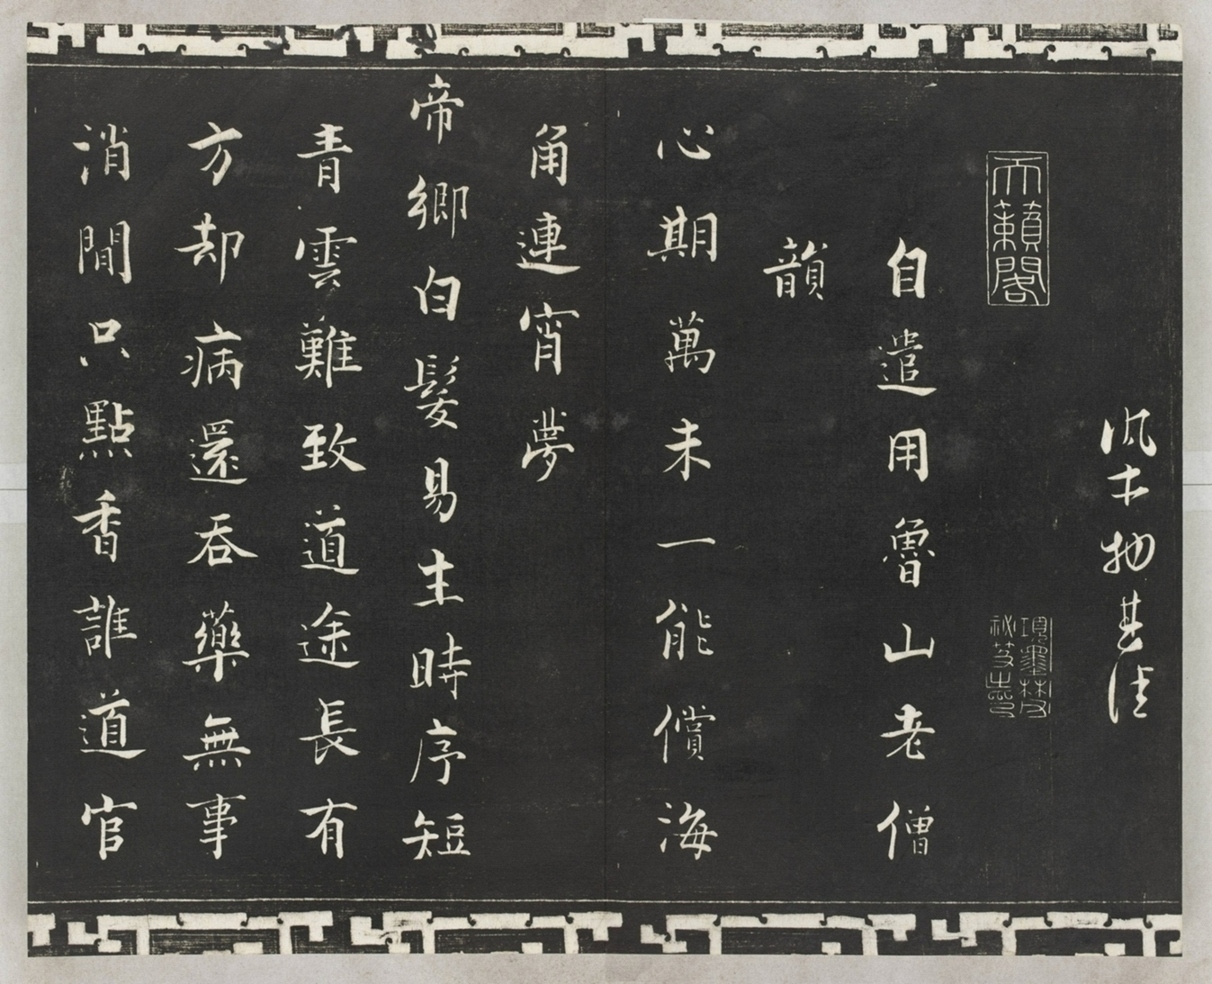 天籟閣
項墨林父
秘笈之印
自遣用魯山老僧
韻
心期萬未一能償海
角連宵夢
帝鄉白髮易生時序短
青雲難致道途長有
方却病還吞藥無事
消閒只點香誰道官